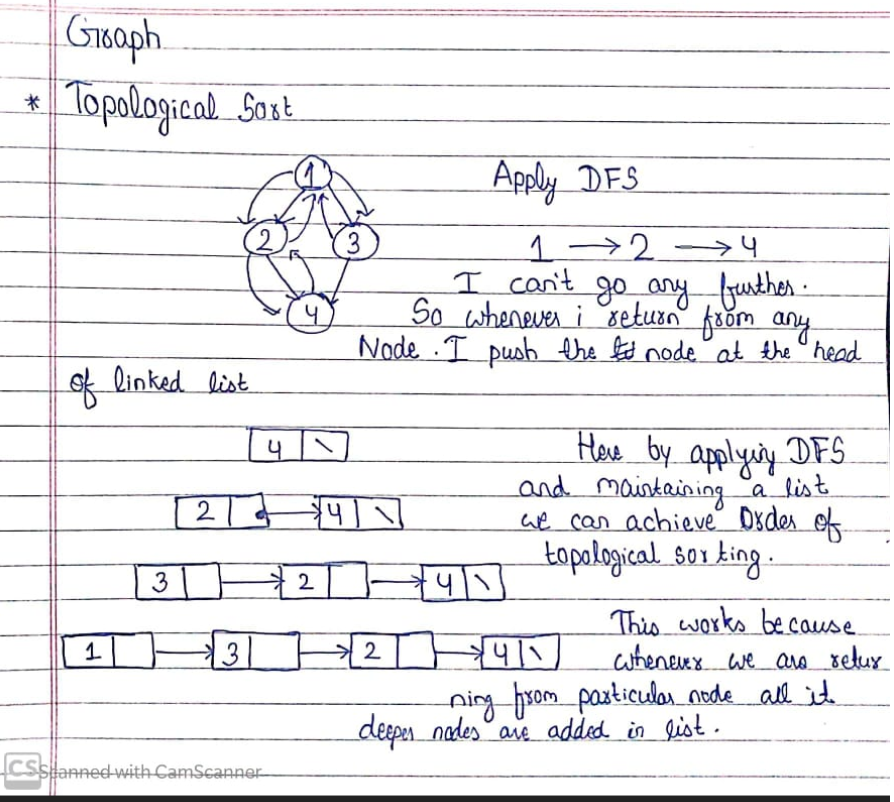 Graph
* Topological Sort
1
2 3
4
Apply DFS
1 → 2 → 4
I can't go any further.
So whenever i return from any
Node. I push the node at the head
of linked list
4 \
2 4 \
3 2 4 \
1 3 2 4 \
Here by applying DFS
and maintaining a list
we can achieve Order of
topological sorting.
This works because
whenever we are retur
ning from particular node all it
deeper nodes are added in list.
CS Scanned with CamScanner